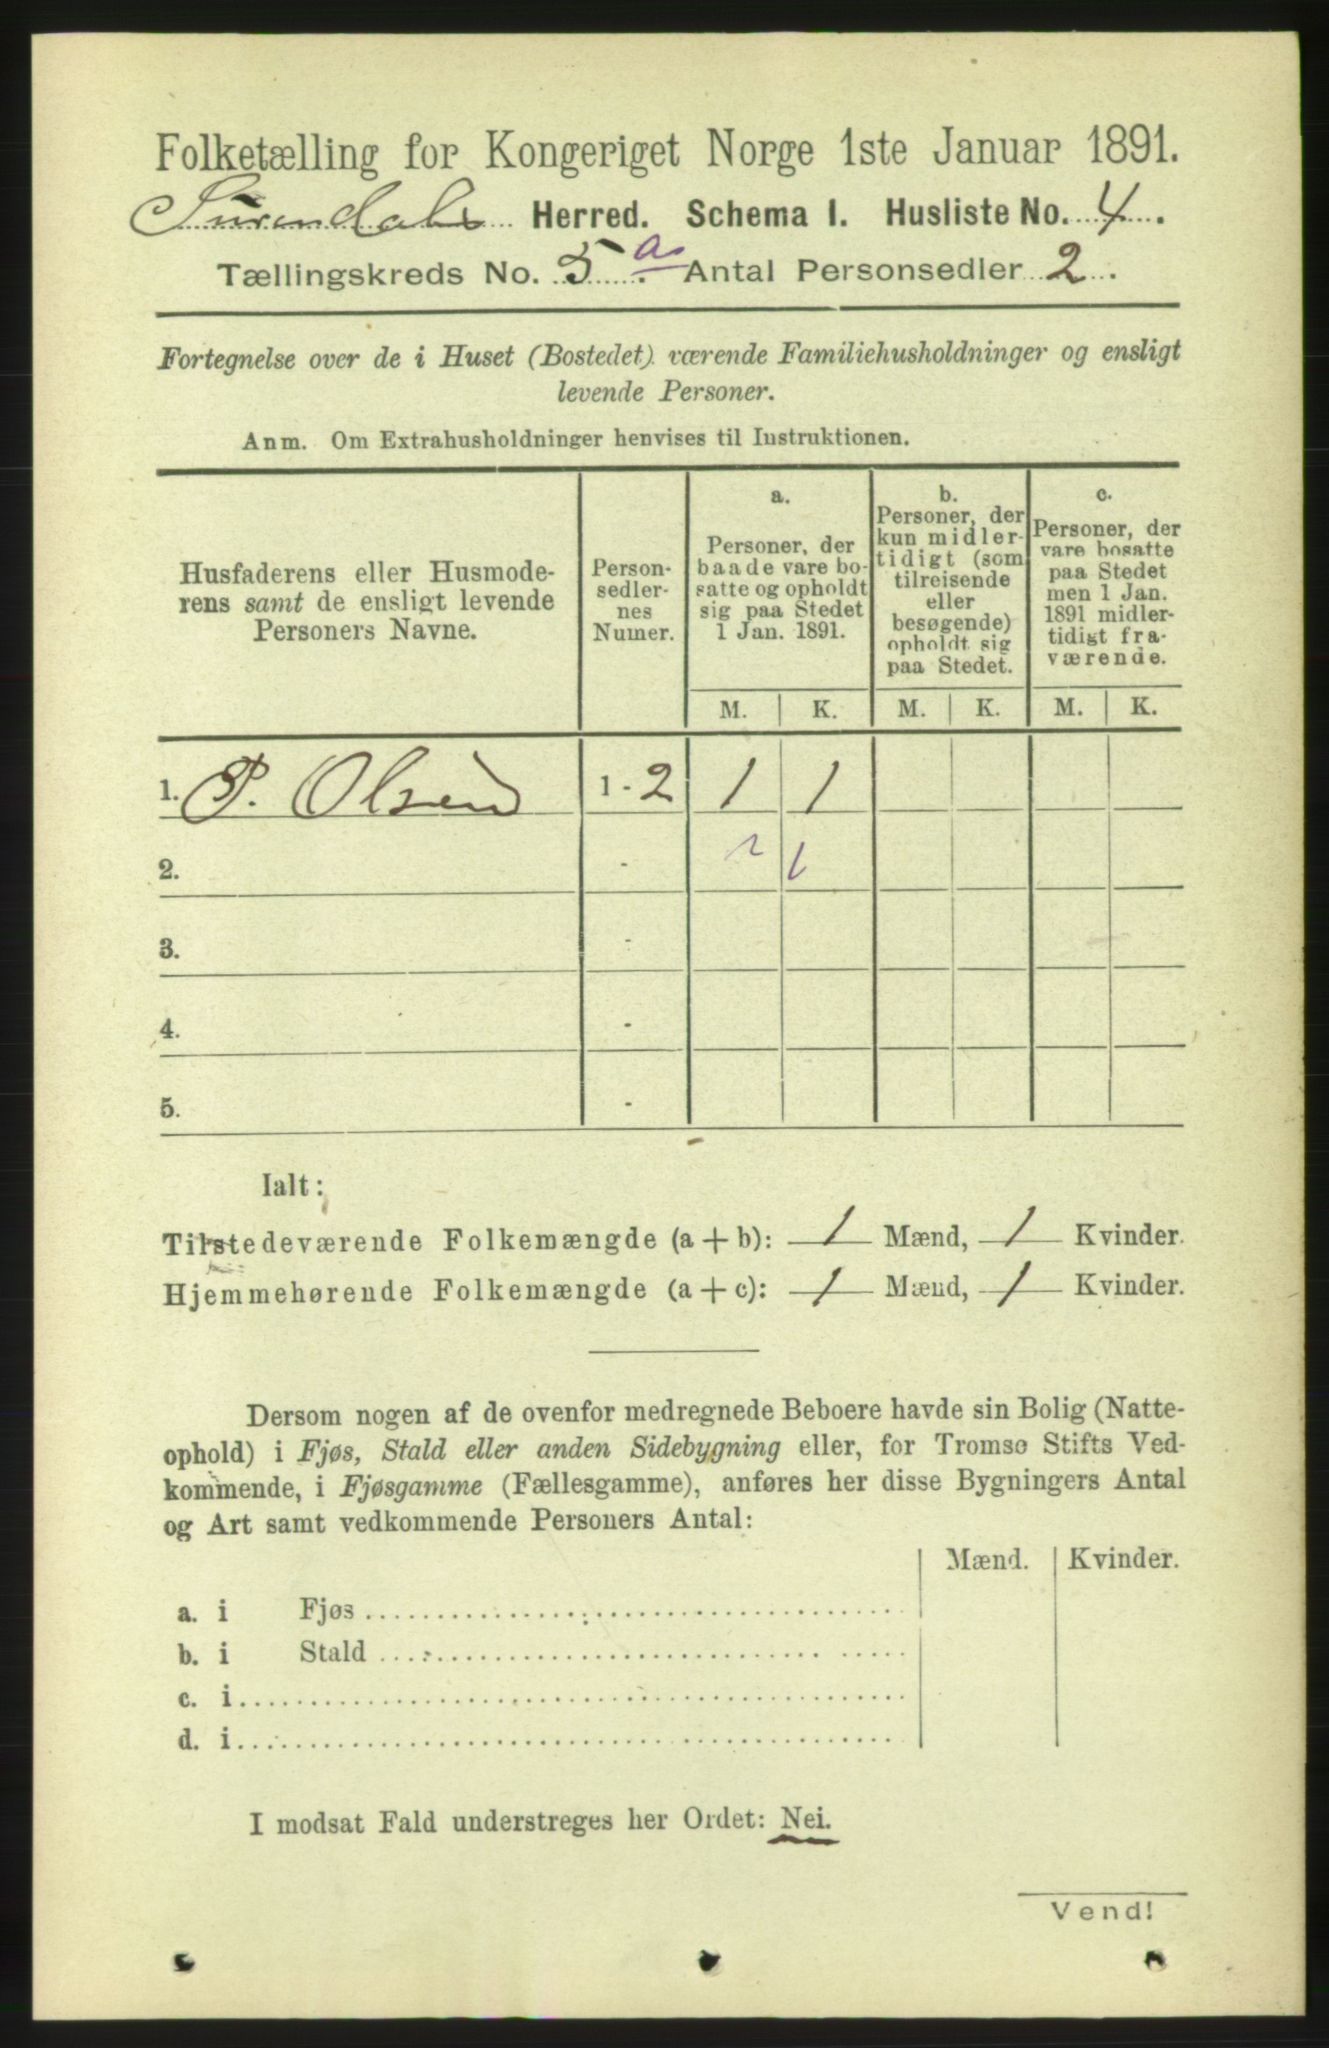 Folketælling for Kongeriget Norge 1ste Januar 1891.
Surendals Herred. Schema I. Husliste No. 4.
Tællingskreds No. 5 a. Antal Personsedler 2.
Fortegnelse over de i Huset (Bostedet) værende Familiehusholdninger og ensligt
levende Personer.
Anm. Om Extrahusholdninger henvises til Instruktionen.
Husfaderens eller Husmode-
rens samt de ensligt levende
Personers Navne.
Person-
sedler-
nes
Numer.
a.
Personer, der
baade vare bo-
satte og opholdt
sig paa Stedet
1 Jan. 1891.
b.
Personer, der
kun midler-
tidigt (som
tilreisende
eller
besøgende)
opholdt sig
paa Stedet.
c.
Personer, der
vare bosatte
paa Stedet
men 1 Jan.
1891 midler-
tidigt fra-
værende.
M. K. M. K. M. K.
1. P. Olsen 1 - 2 1 1
2. - 1
3. -
4. -
5. -
Ialt:
Tilstedeværende Folkemængde (a + b): 1 Mænd, 1 Kvinder.
Hjemmehørende Folkemængde (a + c): 1 Mænd, 1 Kvinder.
Dersom nogen af de ovenfor medregnede Beboere havde sin Bolig (Natte-
ophold) i Fjøs, Stald eller anden Sidebygning eller, for Tromsø Stifts Ved-
kommende, i Fjøsgamme (Fællesgamme), anføres her disse Bygningers Antal
og Art samt vedkommende Personers Antal:
Mænd. Kvinder.
a. i Fjøs
b. i Stald
c. i
d. i
I modsat Fald understreges her Ordet: Nei.
Vend!